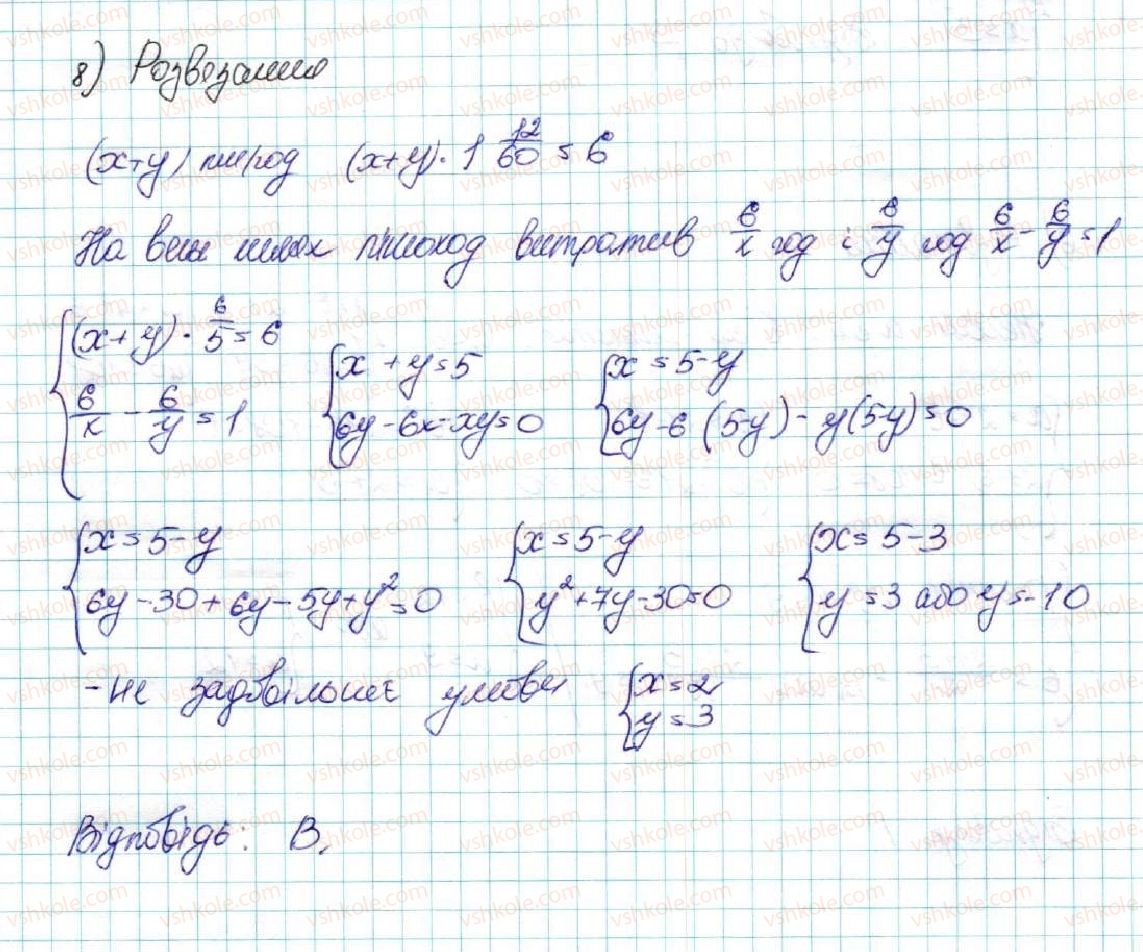 8) Розвязання
(x+y) км/год (x+y)·1 12/60 = 6
На весь шлях пішоход витратив 6/x год і 6/y год 6/x - 6/y = 1
{(x+y)·6/5 = 6 {x+y=5 {x=5-y
6/x - 6/y = 1 6y-6x-xy=0 6y-6(5-y)-y(5-y)=0
{x=5-y {x=5-y {x=5-3
6y-30+6y-5y+y²=0 y²+7y-30=0 y=3 або y=-10
- не задовільняє умови {x=2
y=3
Відповідь: В.